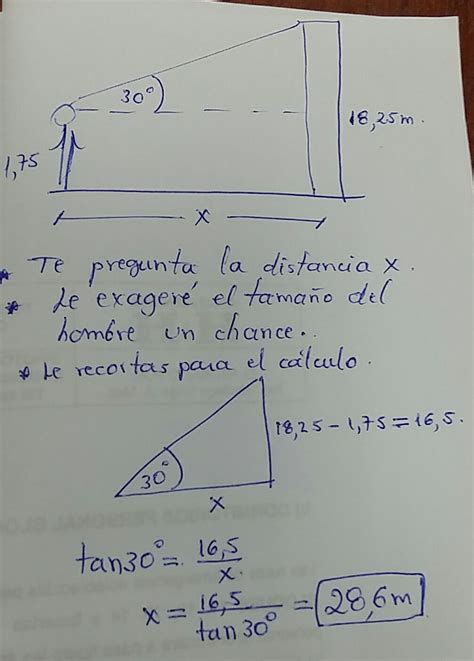 30°
18,25 m.
1,75
x
* Te pregunta la distancia x.
* Le exageré el tamaño del
hombre un chance..
* Le recortas para el cálculo.
18,25 - 1,75 = 16,5.
30°
x
tan30° = 16,5/x.
x = 16,5/tan30° = 28,6m